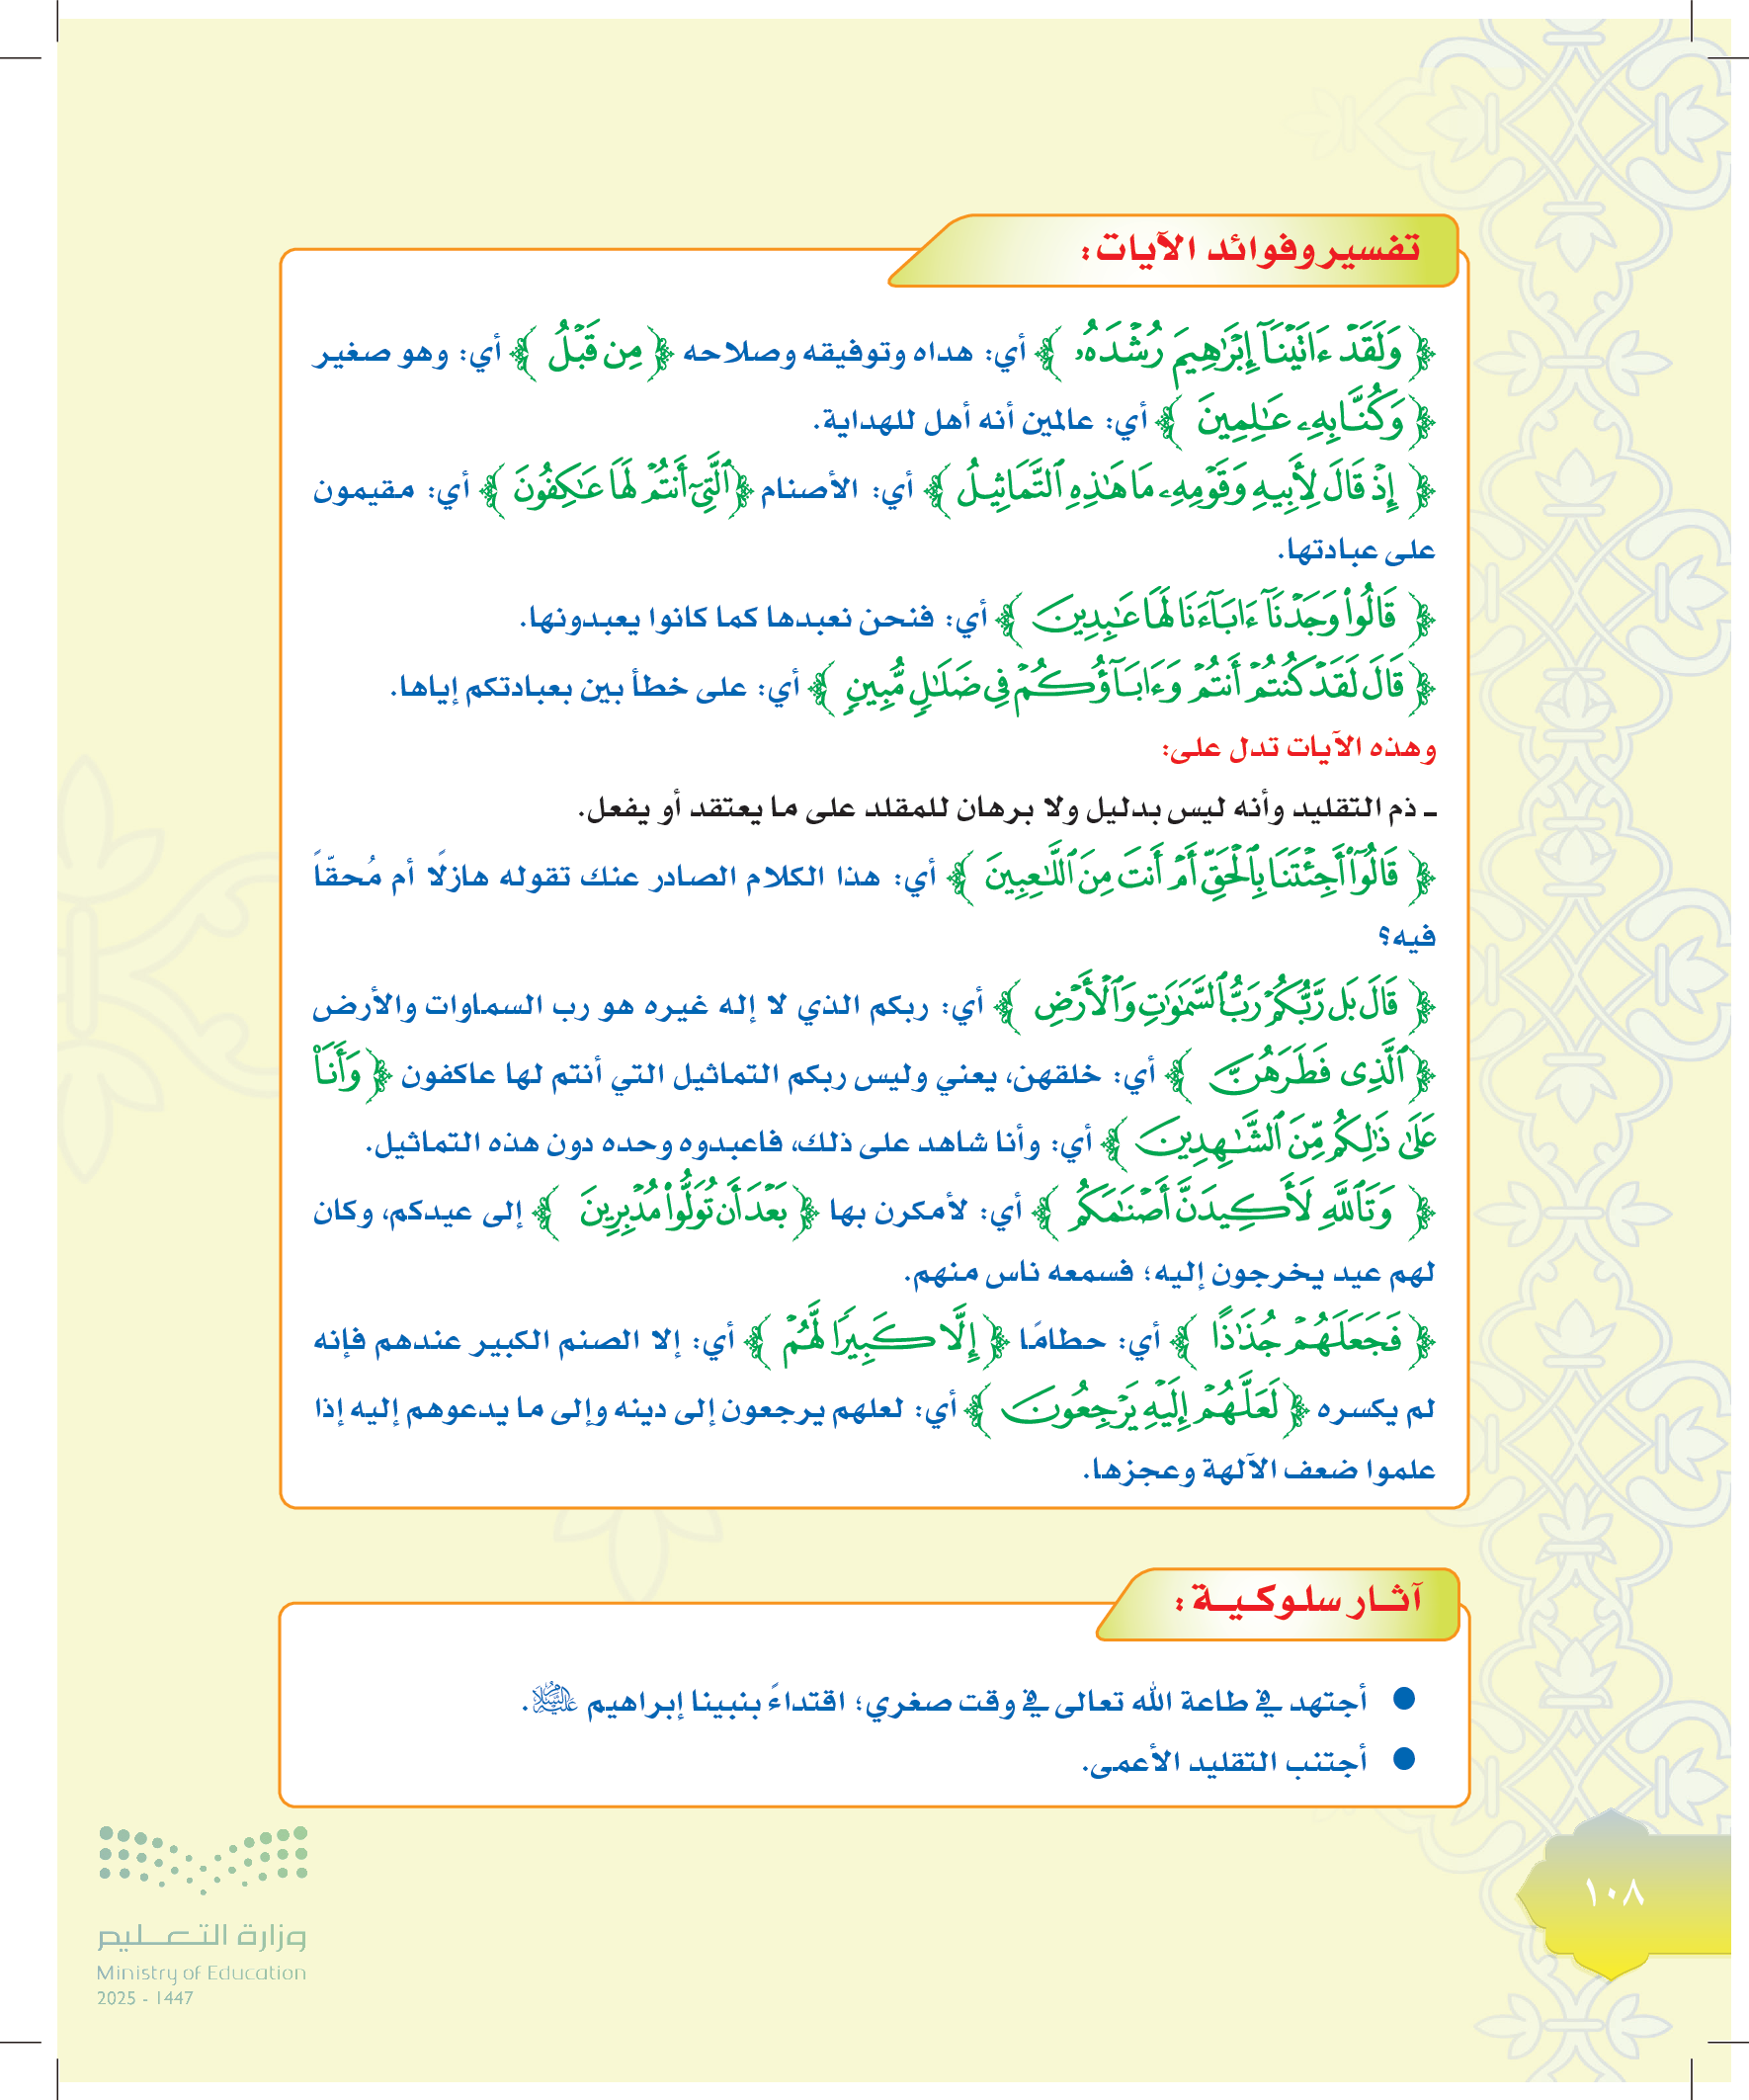 تفسير وفوائد الآيات :
﴿ وَلَقَدْ ءَاتَيْنَآ إِبْرَٰهِيمَ رُشْدَهُۥ ﴾ أي: هداه وتوفيقه وصلاحه ﴿ مِن قَبْلُ ﴾ أي: وهو صغير
﴿ وَكُنَّا بِهِۦ عَٰلِمِينَ ﴾ أي: عالمين أنه أهل للهداية.
﴿ إِذْ قَالَ لِأَبِيهِ وَقَوْمِهِۦ مَا هَٰذِهِ ٱلتَّمَاثِيلُ ﴾ أي: الأصنام ﴿ ٱلَّتِىٓ أَنتُمْ لَهَا عَٰكِفُونَ ﴾ أي: مقيمون
على عبادتها.
﴿ قَالُوا۟ وَجَدْنَآ ءَابَآءَنَا لَهَا عَٰبِدِينَ ﴾ أي: فنحن نعبدها كما كانوا يعبدونها.
﴿ قَالَ لَقَدْ كُنتُمْ أَنتُمْ وَءَابَآؤُكُمْ فِى ضَلَٰلٍ مُّبِينٍ ﴾ أي: على خطأ بين بعبادتكم إياها.
وهذه الآيات تدل على:
ـ ذم التقليد وأنه ليس بدليل ولا برهان للمقلد على ما يعتقد أو يفعل.
﴿ قَالُوٓا۟ أَجِئْتَنَا بِٱلْحَقِّ أَمْ أَنتَ مِنَ ٱللَّٰعِبِينَ ﴾ أي: هذا الكلام الصادر عنك تقوله هازلًا أم مُحقّاً
فيه؟
﴿ قَالَ بَل رَّبُّكُمْ رَبُّ ٱلسَّمَٰوَٰتِ وَٱلْأَرْضِ ﴾ أي: ربكم الذي لا إله غيره هو رب السماوات والأرض
﴿ ٱلَّذِى فَطَرَهُنَّ ﴾ أي: خلقهن، يعني وليس ربكم التماثيل التي أنتم لها عاكفون ﴿ وَأَنَا۠
عَلَىٰ ذَٰلِكُم مِّنَ ٱلشَّٰهِدِينَ ﴾ أي: وأنا شاهد على ذلك، فاعبدوه وحده دون هذه التماثيل.
﴿ وَتَٱللَّهِ لَأَكِيدَنَّ أَصْنَٰمَكُم ﴾ أي: لأمكرن بها ﴿ بَعْدَ أَن تُوَلُّوا۟ مُدْبِرِينَ ﴾ إلى عيدكم، وكان
لهم عيد يخرجون إليه؛ فسمعه ناس منهم.
﴿ فَجَعَلَهُمْ جُذَٰذًا ﴾ أي: حطامًا ﴿ إِلَّا كَبِيرًا لَّهُمْ ﴾ أي: إلا الصنم الكبير عندهم فإنه
لم يكسره ﴿ لَعَلَّهُمْ إِلَيْهِ يَرْجِعُونَ ﴾ أي: لعلهم يرجعون إلى دينه وإلى ما يدعوهم إليه إذا
علموا ضعف الآلهة وعجزها.
آثـار سلوكـيـة :
● أجتهد في طاعة الله تعالى في وقت صغري؛ اقتداءً بنبينا إبراهيم عليه السلام.
● أجتنب التقليد الأعمى.
١٠٨
وزارة التعليم
Ministry of Education
2025 - 1447